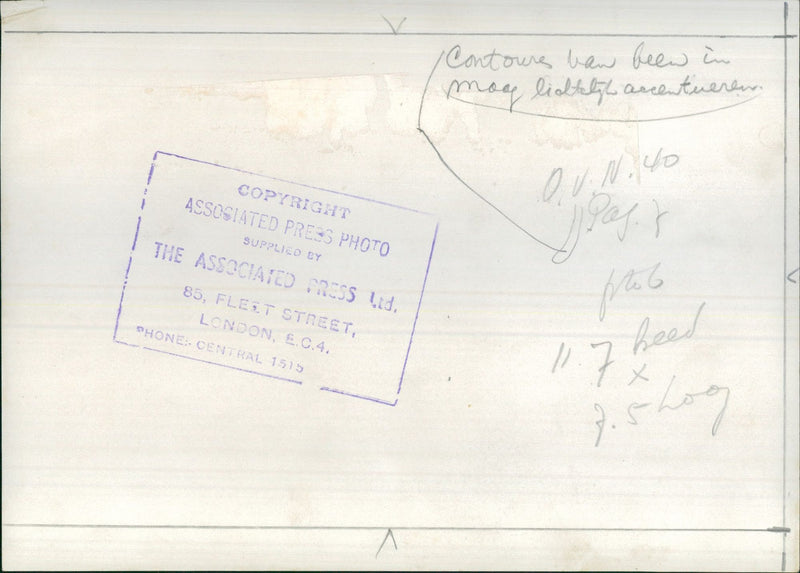 Contoures van been in
maag lichtelijk accentueren.
O.V.N. 40
Pag. 7
COPYRIGHT
ASSOCIATED PRESS PHOTO
SUPPLIED BY
THE ASSOCIATED PRESS Ltd.
85, FLEET STREET,
LONDON, E.C.4.
PHONE: CENTRAL 1515
11.7 breed
x
7.5 hoog